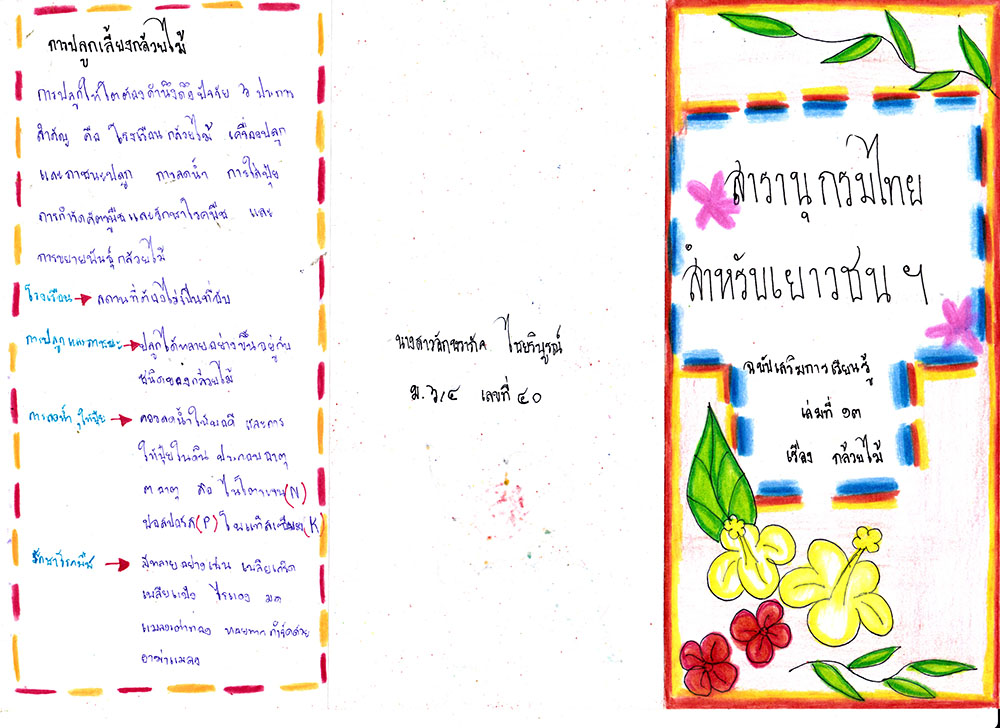 การปลูกเลี้ยงกล้วยไม้
การปลูกให้โตต้องคำนึงถึงปัจจัย ๖ ประการ
สำคัญ คือ โรงเรือนกล้วยไม้ เครื่องปลูก
และภาชนะปลูก การรดน้ำ การใส่ปุ๋ย
การกำจัดศัตรูพืชและรักษาโรคพืช และ
การขยายพันธุ์กล้วยไม้
โรงเรือน สถานที่ต้องไม่เป็นที่อับ
การปลูกและภาชนะ ปลูกได้หลายอย่างขึ้นอยู่กับ
ชนิดของกล้วยไม้
การรดน้ำ,ให้ปุ๋ย ควรรดน้ำให้พอดี และการ
ให้ปุ๋ยในดิน ประกอบธาตุ
๓ ธาตุ คือ ไนโตรเจน(N)
ฟอสฟอรัส(P) โพแทสเซียม(K)
รักษาโรคพืช มีหลายอย่างเช่น เพลี้ย
เพลี้ยแป้ง ไรแดง มด
แมลงเต่าทอง กำจัดด้วย
ยาฆ่าแมลง
นางสาว ไชยริบูรณ์
ม.๖/๔ เลขที่ ๔๐
สารานุกรมไทย
สำหรับเยาวชน ฯ
ฉบับเสริมการเรียนรู้
เล่มที่ ๑๓
เรื่อง กล้วยไม้